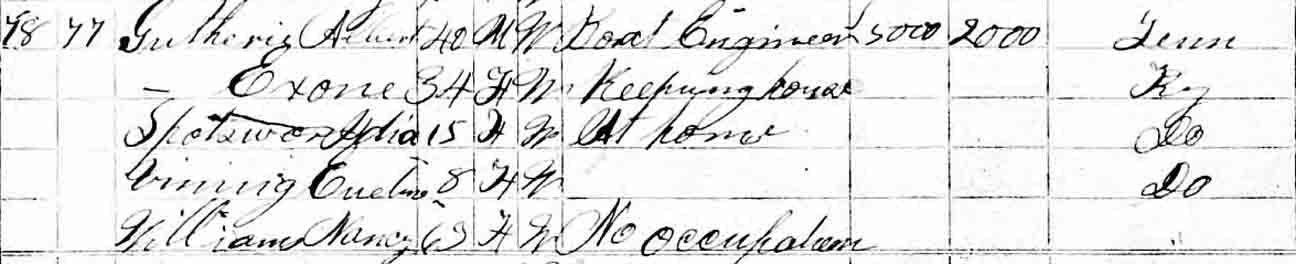 78 77 Gutheric Albert 40 M W Boat Engineer 5000 2000 Tenn
— Exone 34 F W Keeping house Ky
Spotswor 15 F W At home Do
Vining 8 F W Do
Williams Nancy 63 F W No occupation